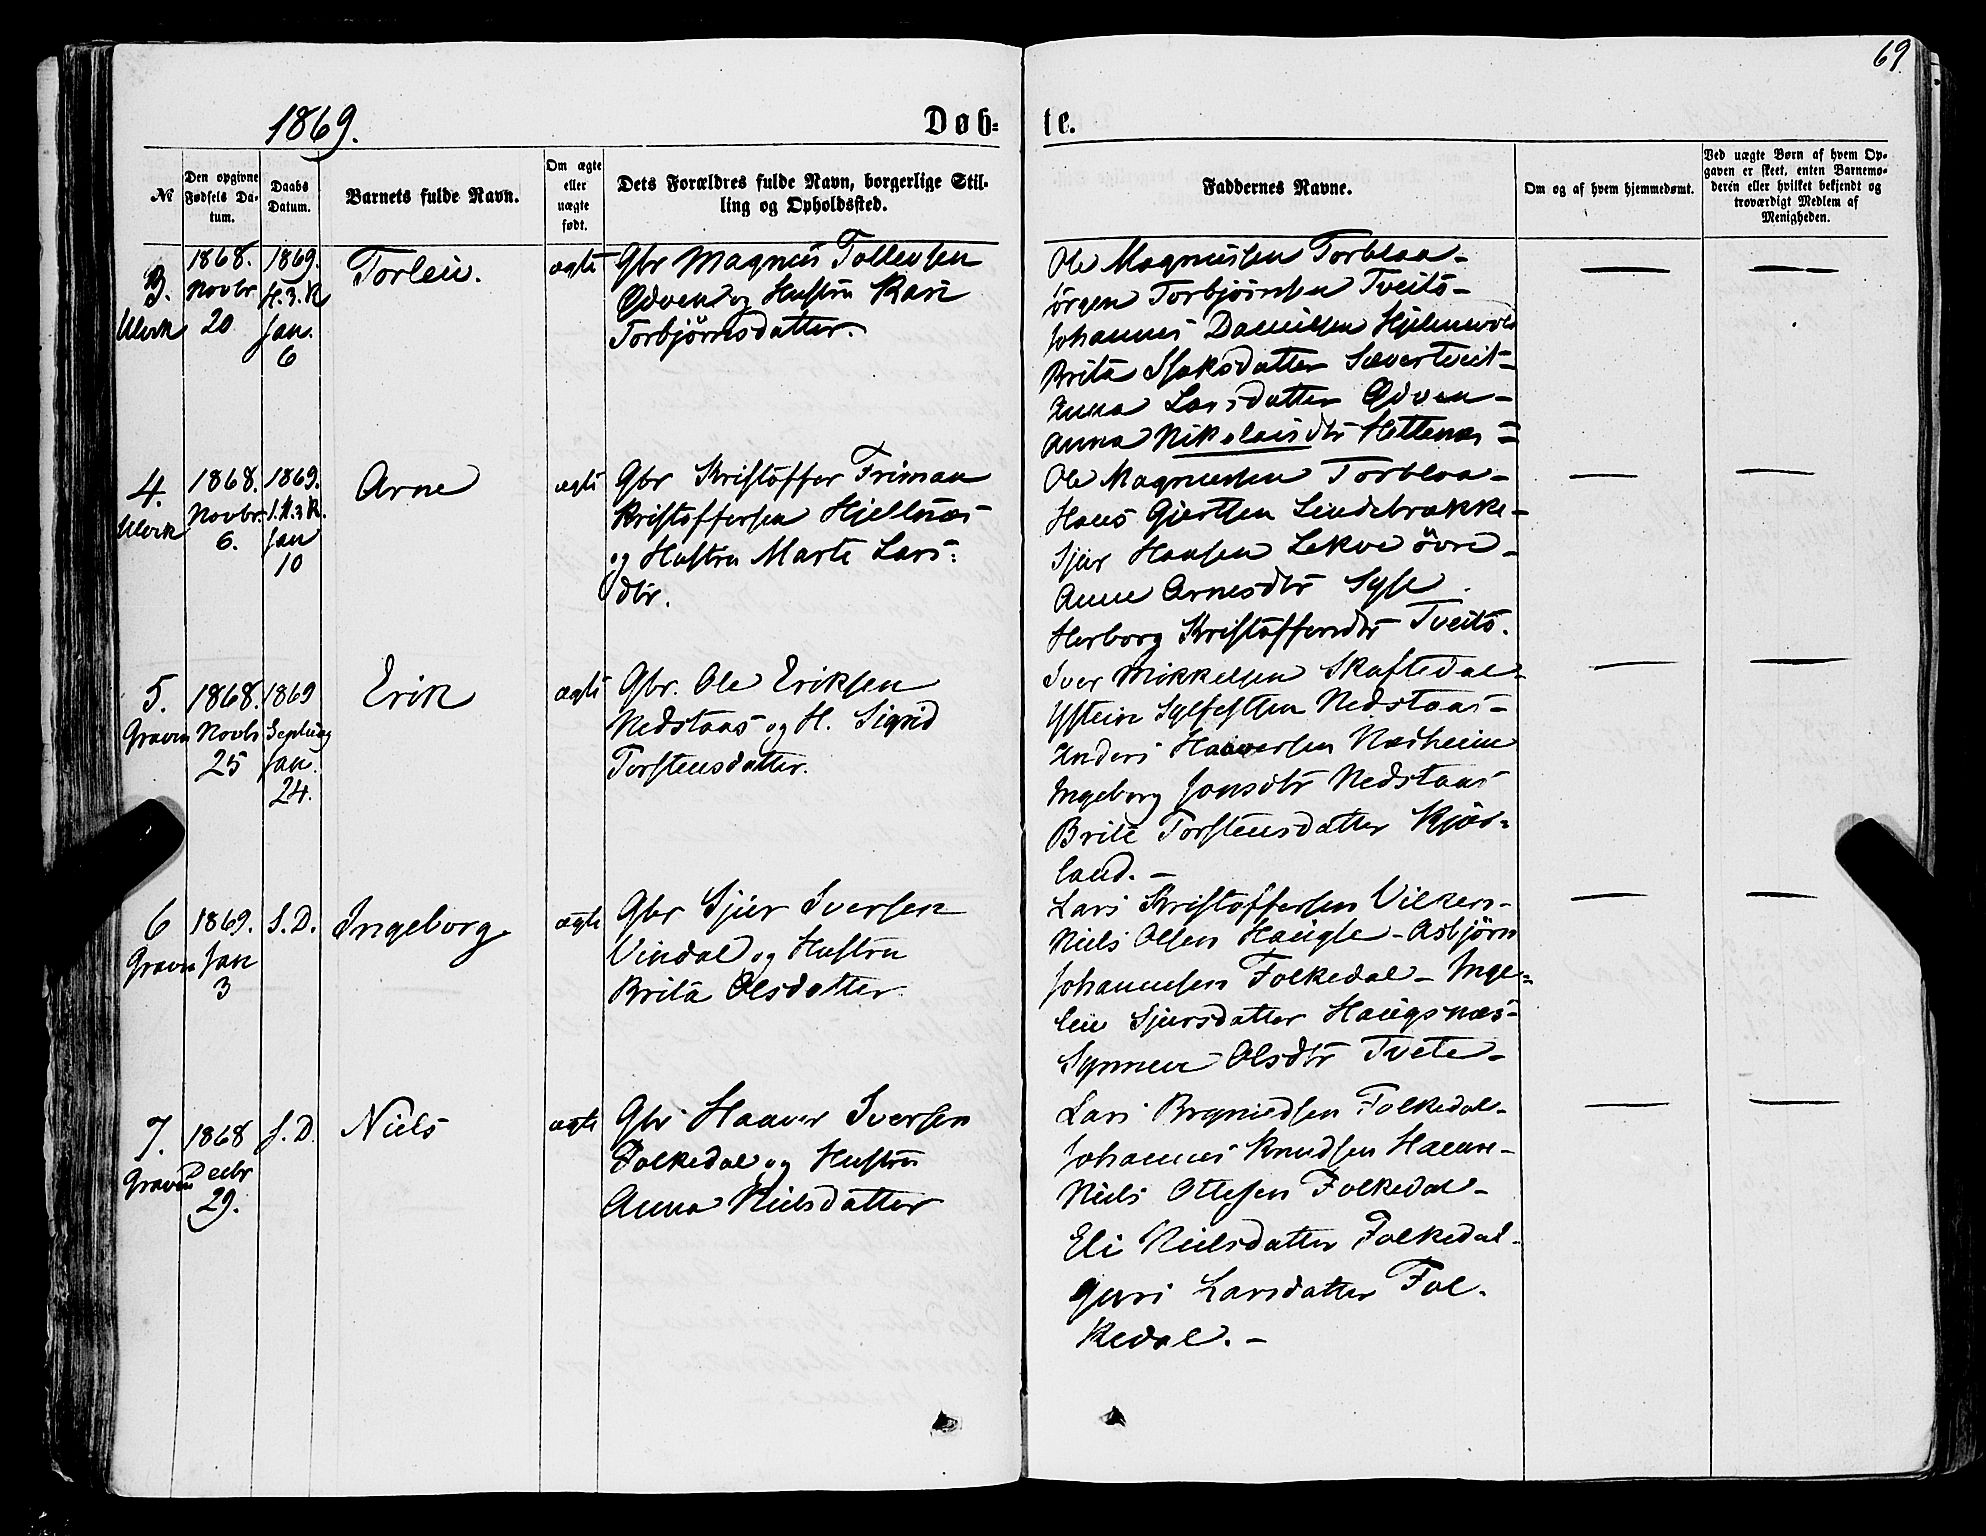 69.
1869.
Døb=
te.
№
Den opgivne Fødsels Da-
tum.
Daabs
Datum.
Barnets fulde Navn.
Om ægte
eller
uægte
født.
Dets Forældres fulde Navn, borgerlige Stil-
ling og Opholdssted.
Faddernes Navne.
Om og af hvem hjemmedømt.
Ved uægte Børn af hvem Op-
gaven er skeet, enten Barnemo-
deren eller hvilket bekjendt og
troværdigt Medlem af
Menigheden.
3.
Ulvik
1868.
Novbr
20
1869.
H.3.K
Jan.
6
Torleiv.
ægte
Gbr Magnus Tollevsen
Qdven og Hustru Kari
Torbjörnsdatter.
Ole Magnussen Torbloa -
Jörgen Torbjörnsen Tveito -
Johannes Danielsen Hjelmvold
Brita Isaksdatter Sævertveit -
Anna Larsdatter Qdven -
Anna Nikolaisdtr Hettenæs =
4.
Ulvik
1868.
Novbr.
6.
1869.
1.H.3K.
Jan
10
Arne
ægte
Gbr Kristoffer Friman
Kristoffersen Hjeltnæs
og Hustru Marte Lars:
dtr.
Ole Magnussen Torbloa -
Hans Gjertsen Lindebrække -
Sjur Hansen Lekve övre -
Anne Arnesdtr Syse .
Herborg Kristoffersdtr Tveito.
5.
Graven
1868.
Novbr
25
1869
Septuag
Jan.
24.
Erik
ægte
Gbr. Ole Eriksen
Nedstaas og H. Sigrid
Torstensdatter.
Iver Mikkelsen Skaftedal -
Ystein Sylfestsen Nedstaas -
Anders Haaversen Næsheim
Ingeborg Jonsdtr Nedstaas
Brite Torstensdatter Kjær-
land. -
6
Graven
1869.
Jan
3
S.D.
Ingeborg
ægte
Gbr Sjur Iversen
Vindal og Hustru
Brita Olsdatter.
Lars Kristoffersen Vilken -
Niels Olsen Haugse - Asbjörn
Johannesen Folkedal - Inge-
lev Sjursdatter Haugsnæs -
Synneve Olsdtr Tveite -
7.
Graven
1868
Decbr
29.
S.D.
Niels
ægte
Gbr Haaver Iversen
Folkedal og Hustru
Anna Nielsdatter
Lars Brynildsen Folkedal -
Johannes Knudsen Hamre -
Niels Ottesen Folkedal -
Eli Nielsdatter Folkedal -
Guri Larsdatter Fol-
kedal. -